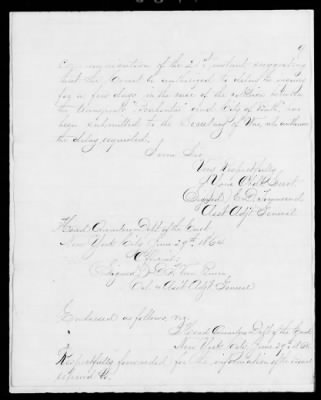 9
communication of the 27th instant, suggesting
that the Board be authorized to delay the inquiry
for a few days, in the case of the collision between
the transports "Pocahontas" and "City of Bath" has
been submitted to the Secretary of War, who authorizes
the delay requested.
I am Sir,
Very Respectfully,
Your Obdt Servt.
Signed E. D. Townsend
Asst Adjt General
Head Quarters Dept of the East
New York City June 29th 1864
Official:
Signed D. T. Van Buren,
Col. & Asst Adjt General
Endorsed as follows, viz
Head Quarters Dept of the East
New York City, June 29th 1864
Respectfully forwarded for the information of the Board